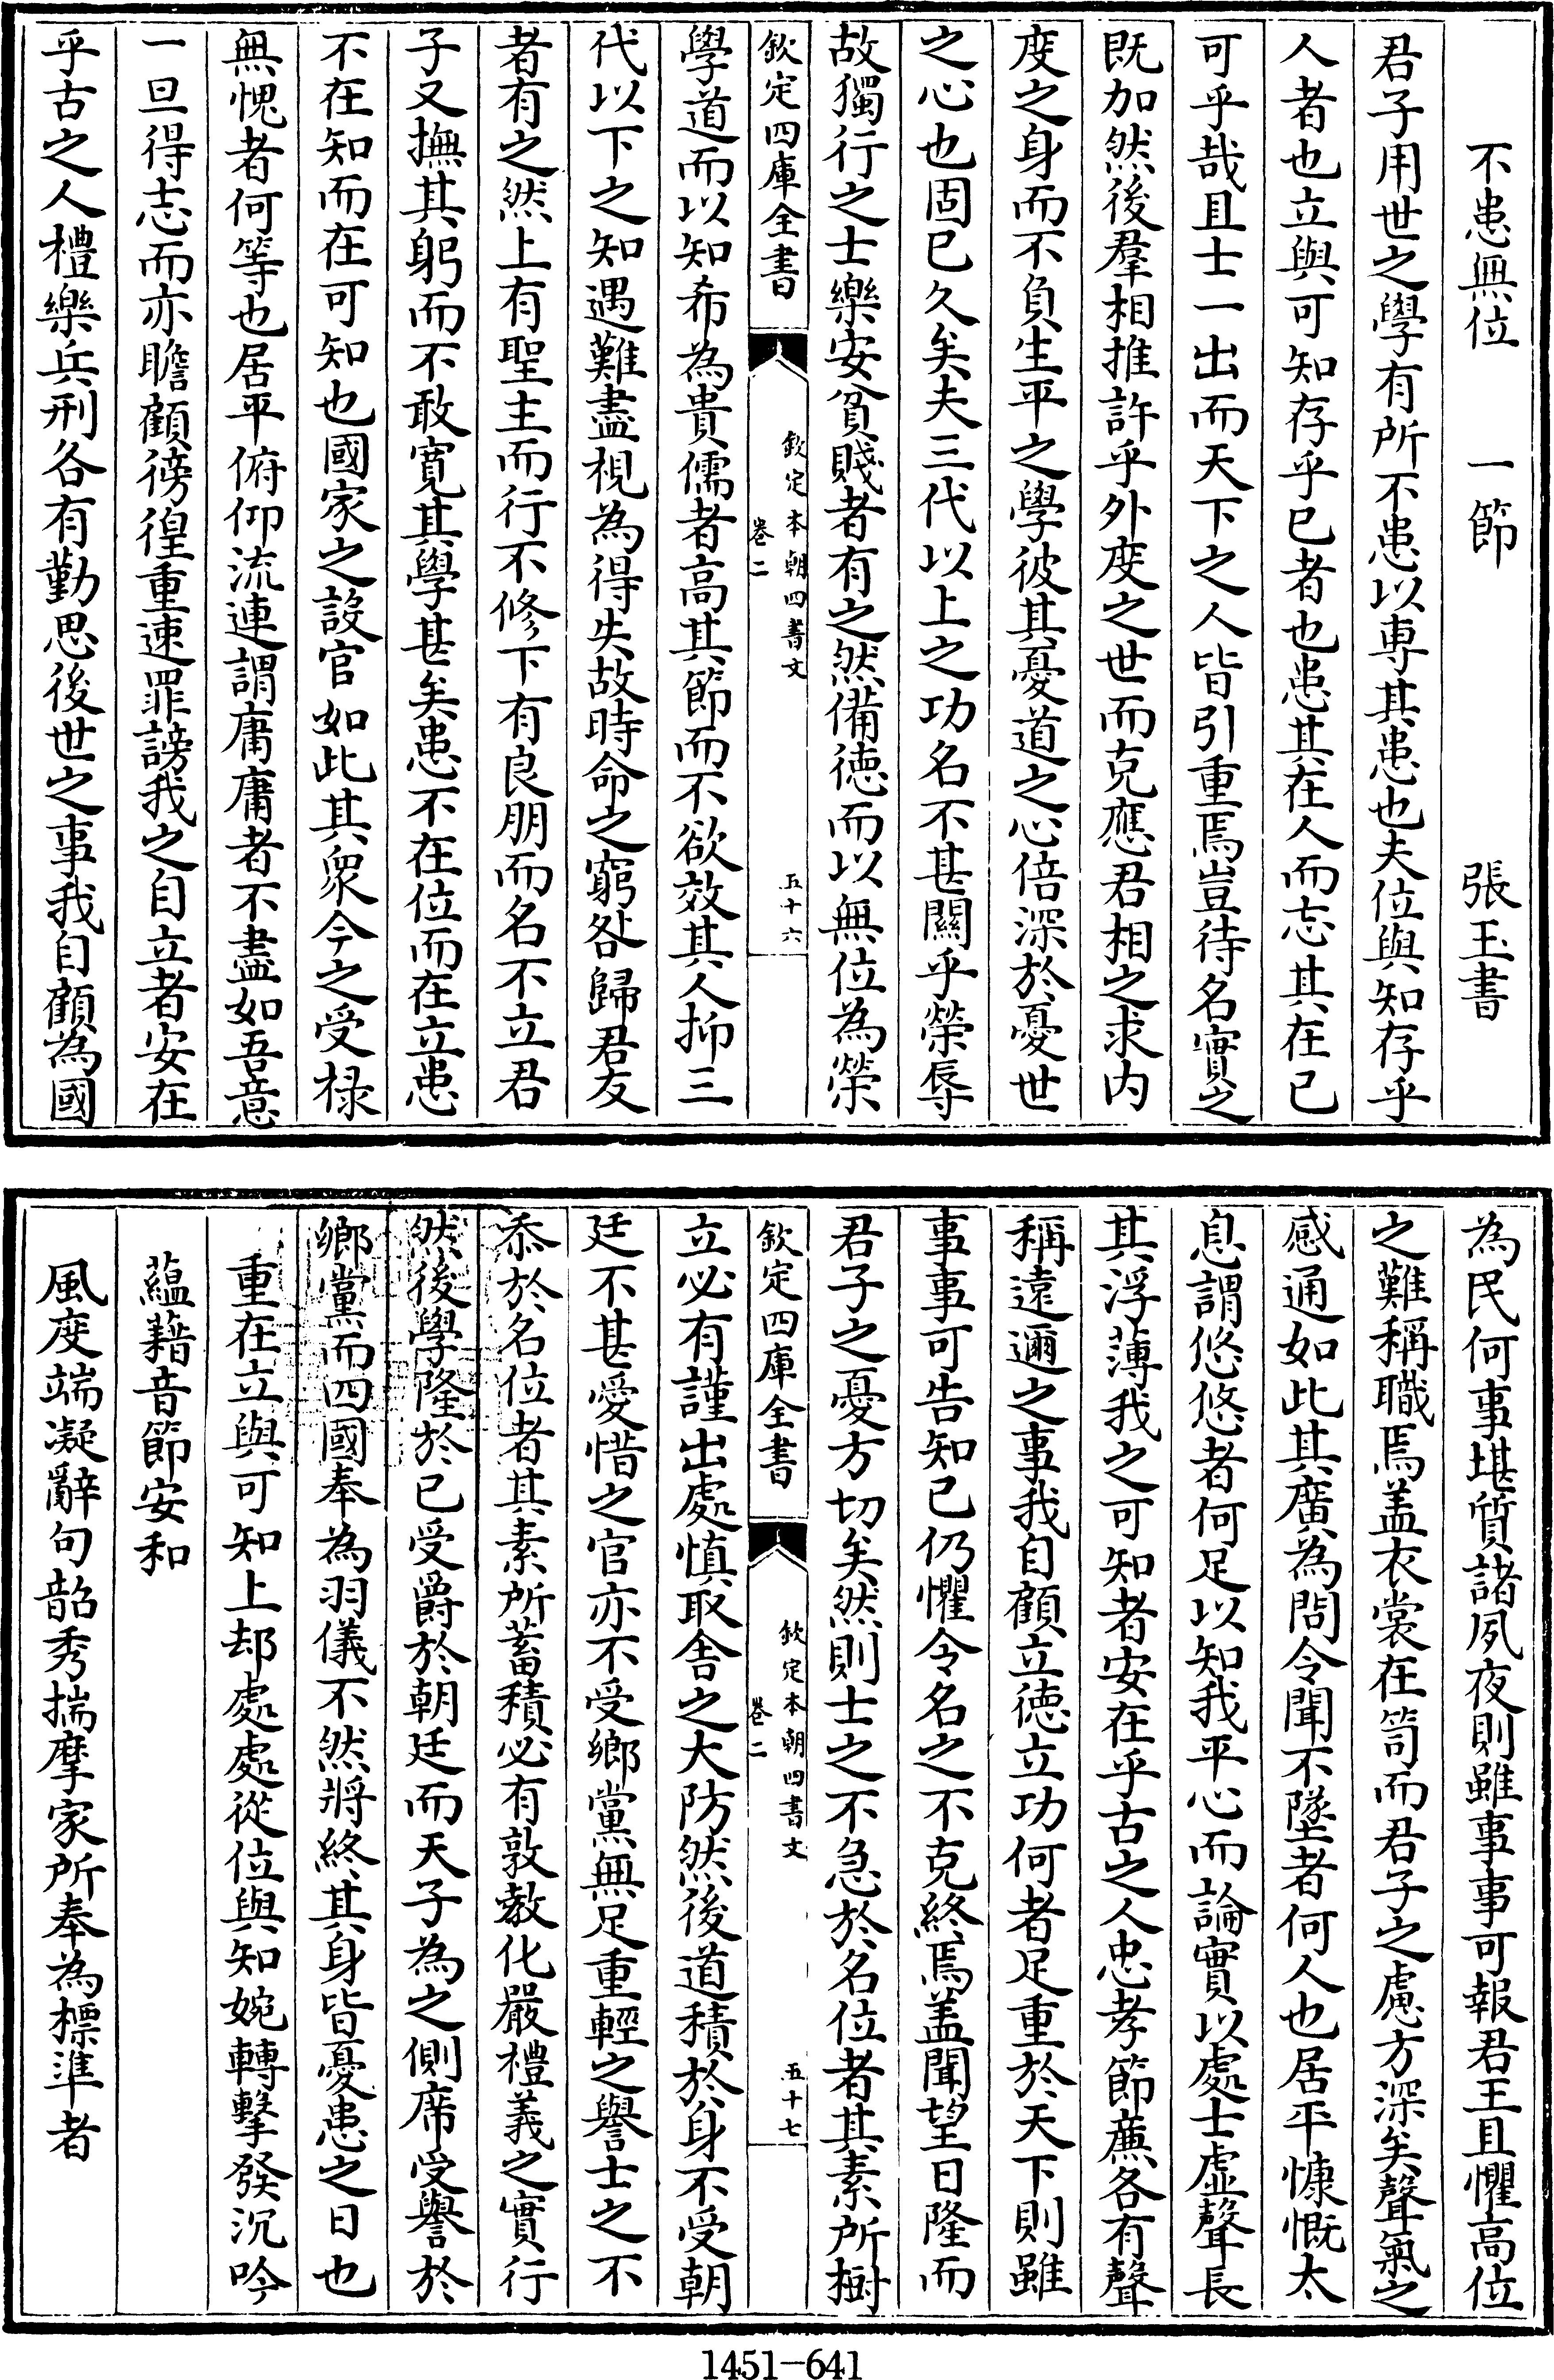 不患無位　一節　張玉書
君子用世之學有所不患以専其患也夫位與知存乎
人者也立與可知存乎已者也患其在人而忘其在已
可乎哉且士一出而天下之人皆引重焉豈待名實之
既加然後羣相推許乎外度之世而克應君相之求内
度之身而不負生平之學彼其憂道之心倍深於憂世
之心也固已久矣夫三代以上之功名不甚關乎榮辱
故獨行之士樂安貧賤者有之然備徳而以無位為榮
欽定四庫全書
欽定本朝四書文
卷二
五十六
學道而以知希為貴儒者高其節而不欲效其人抑三
代以下之知遇難盡視為得失故時命之窮咎歸君友
者有之然上有聖主而行不修下有良朋而名不立君
子又撫其躬而不敢寛其學甚矣患不在位而在立患
不在知而在可知也國家之設官如此其衆今之受禄
無愧者何等也居平俯仰流連謂庸庸者不盡如吾意
一旦得志而亦瞻顧徬徨重速罪謗我之自立者安在
乎古之人禮樂兵刑各有勤思後世之事我自顧為國
為民何事堪質諸夙夜則雖事事可報君王且懼高位
之難稱職焉盖衣裳在笥而君子之慮方深矣聲氣之
感通如此其廣為問令聞不墜者何人也居平慷慨太
息謂悠悠者何足以知我平心而論實以處士虚聲長
其浮薄我之可知者安在乎古之人忠孝節亷各有聲
稱逺邇之事我自顧立徳立功何者足重於天下則雖
事事可告知已仍懼令名之不克終焉盖聞望日隆而
君子之憂方切矣然則士之不急於名位者其素所樹
欽定四庫全書
欽定本朝四書文
卷二
五十七
立必有謹出處慎取舍之大防然後道積於身不受朝
廷不甚愛惜之官亦不受鄉黨無足重輕之譽士之不
忝於名位者其素所蓄積必有敦教化嚴禮義之實行
然後學隆於已受爵於朝廷而天子為之側席受譽於
鄉黨而四國奉為羽儀不然將終其身皆憂患之日也
重在立與可知上却處處從位與知婉轉擊發沉吟
蘊藉音節安和
風度端凝辭句韶秀揣摩家所奉為標準者
1451-641